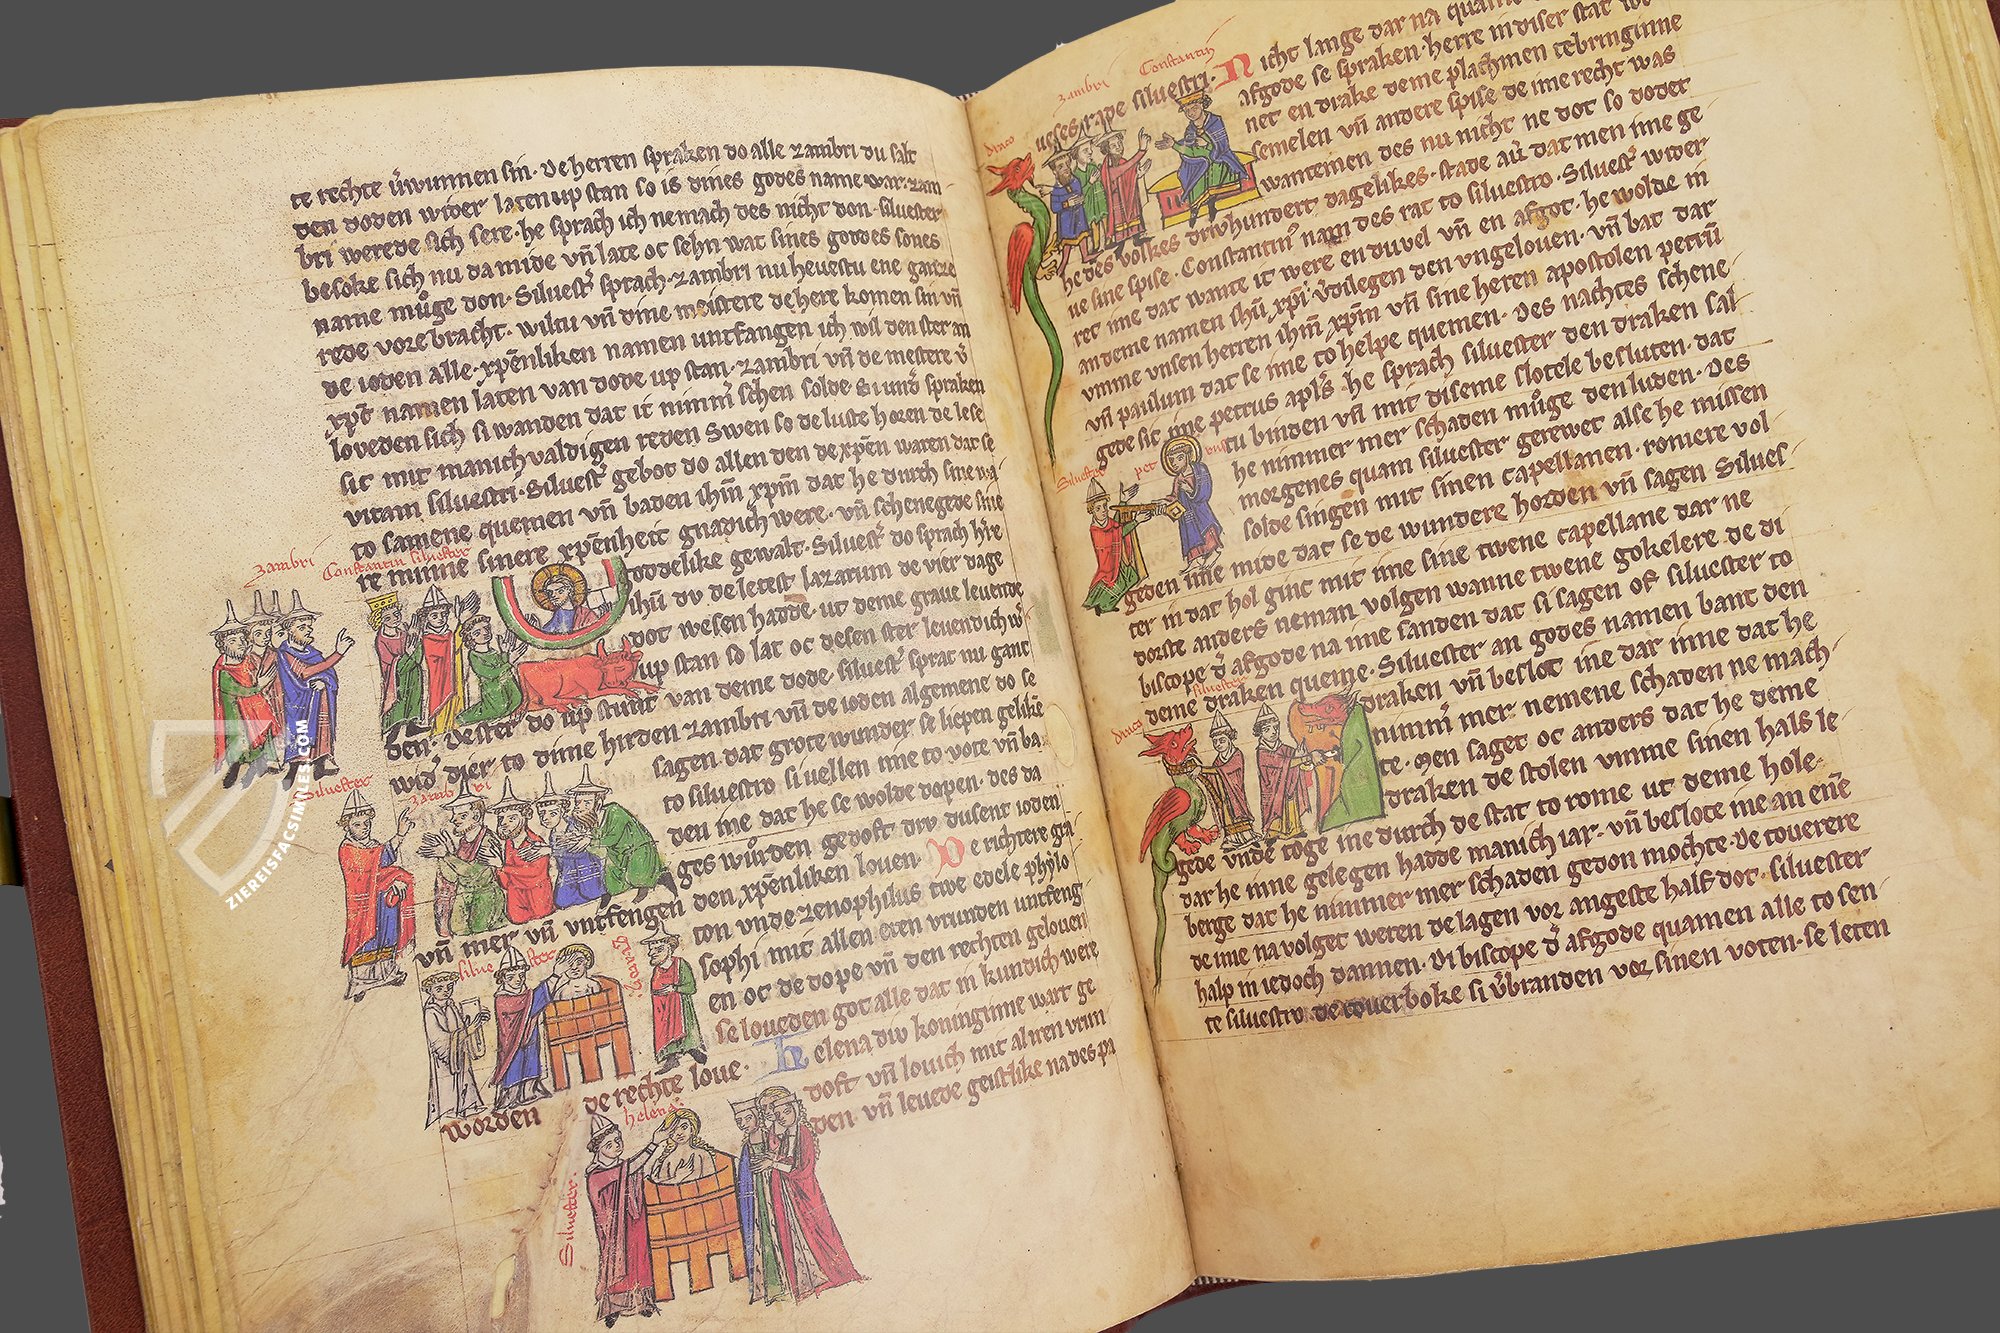 te rechte v̄wunnen sin. De herren spraken do alle zambri du salt
den doden wider laten up stan so is dines godes name war. zam
bri werede sich sere. he sprach ich ne mach des nicht don. siluester
besoke sich nu da mide vn̄ late oc sehn wat sines godes sones
name můge don. Siluest͛ sprach. zambri nu heuestu ene gantze
rede vore bracht. wiltu vn̄ dine meistere de here komen sin vn̄
de ioden alle. xp̄enliken namen untfangen ich wil den ster an
xp̄c namen laten van dode up stan. zambri vn̄ de mestere
loueden sich si wanden dat it nimm͛ schen solde
sit mit manich valdigen reden Swen so de luste horen de lese
vitam siluestri. Siluest͛ gebot do allen den de xp̄en waren dat se
to samene quemen vn̄ baden ih̄m xp̄m dat he durch sine
re minne sinere xp̄enheit gnadich were. vn̄ schenegede sine
zambri
Constantin siluester
goddelike gewalt. Siluest͛ do sprach h͛re
ih̄u du de letest lazarum de vier dage
dot wesen hadde. ut deme graue leuende
up stan so lat oc desen ster leuendich
den. De ster do up stunt van deme dode. siluest͛ sprac nu ganc
wid͛ dier to dine hirden zambri vn̄ de ioden algemene do se
Siluester
zambri
sagen dat grote wunder. se liepen gelike
to siluestro si uellen ime to vote vn̄ ba
den ine dat he se wolde dopen. des da
ges wůrden gedoft driv dusent ioden
vn̄ mer vn̄ untfengen den xp̄enliken louen. De richtere gra
siluester
grato
ton vnde zenophilus twe edele phylo
sophi mit allen eren vrunden untfeng
en oc de dope vn̄ den rechten gelouen
se loueden got alle dat in kundich were
worden de rechte loue. Helena div koninginne wart ge
helena
Siluester
doft vn̄ louich mit al iren vrun
den. vn̄ leuede geistlike na des pa
ueses rade siluestri. Nicht lange dar na quam
draco
zambri
Constantin
afgode se spraken. herre in diser stat
net en drake deme plach men te bringinne
semelen vn̄ andere spise de ime recht was
wante men des nu nicht ne dot so dodet
he des volkes drivhundert dagelikes. stade au͛ dat men ime ge
ue sine spise. Constantin͛ nam des rat to siluestro. Siluest͛ wider
ret ime dat wante it were en duuel vn̄ en afgot. he wolde in
an deme namen ih̄u xp̄i v͛dilegen den vngelouen. vn̄ bat dar
vmme vnsen herren ih̄m xp̄m vn̄ sine heren apostolen petrū
vn̄ paulum dat se ime to helpe quemen. Des nachtes schene
gede sic ime petrus apl͛s. he sprach siluester den draken sal
Siluester
pet
tu binden vn̄ mit diseme slotele besluten. dat
he nimmer mer schaden můge den luden. Des
morgenes quam siluester gerewet alse he missen
solde singen mit sinen capellanen. romere vol
geden ime mide dat se de wundere horden vn̄ sagen Silues
ter in dat hol ginc mit ime sine twene capellane dar ne
dorste anders neman volgen wanne twene gokelere de di
biscope d͛ afgode na ime sanden dat si sagen of siluester to
deme draken queme. Siluester an godes namen bant den
siluester
draco
draken vn̄ beslot ine dar inne dat he
nimm͛ mer nemene schaden ne mach
te. Men saget oc anders dat he deme
draken de stolen vmme sinen hals le
gede vnde toge ine durch de stat to rome ut deme hole.
dar he inne gelegen hadde manich iar. vn̄ beslote ine an ene
berge dat he nimmer mer schaden gedon mochte. De touerere
de ime na volget weren de lagen vor angeste half dot. siluester
halp in iedoch dannen. Di biscope d͛ afgode quamen alle to sen
te siluestro de touerboke si v͛branden vor sinen voten. se leten
ZIEREISFACSIMILES.COM